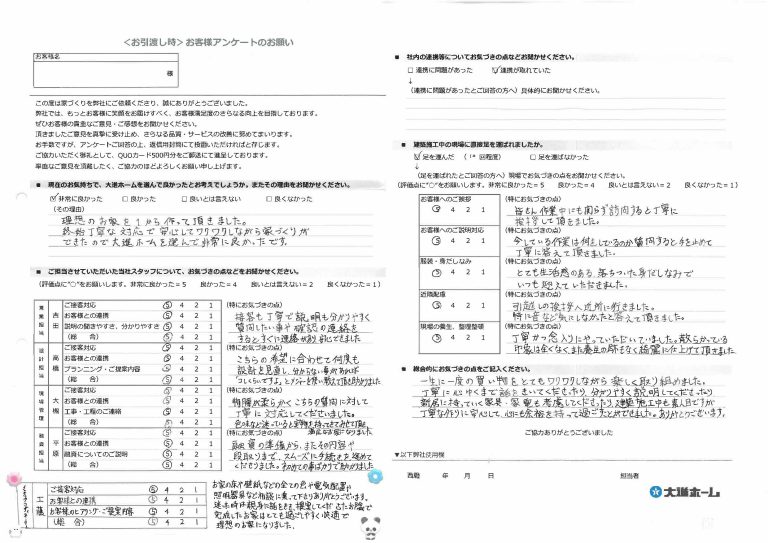 <お引渡し時>お客様アンケートのお願い
お客様名
様
この度は家づくりを弊社にご依頼くださり、誠にありがとうございました。
弊社では、もっとお客様に笑顔をお届けすべく、お客様満足度のさらなる向上を目指しております。
ぜひお客様の貴重なご意見・ご感想をお聞かせください。
頂きましたご意見を真摯に受け止め、さらなる品質・サービスの改善に努めてまいります。
お手数ですが、アンケートご回答の上、返信用封筒にて投函いただければと存じます。
ご協力いただく御礼として、QUOカード500円分をご郵送にて進呈しております。
率直なご意見を頂戴したく、ご協力のほどよろしくお願い申し上げます。
■ 現在のお気持ちで、大進ホームを選んで良かったとお考えでしょうか。またその理由をお聞かせください。
☑非常に良かった □良かった □良いとは言えない □良くなかった
(その理由)
理想のお家を1から作って頂きました。
終始丁寧な対応で安心してワクワクしながら家づくりが
できたので大進ホームを選んで非常に良かったです。
■ ご担当させていただいた当社スタッフについて、お気づきの点などをお聞かせください。
(評価点に"○"をお願いします。非常に良かった=5 良かった=4 良いとは言えない=2 良くなかった=1)
営業担当 吉田
ご接客対応 ⑤ 4 2 1 (特にお気づきの点)
お客様との連携 ⑤ 4 2 1
説明の聞きやすさ、分かりやすさ ⑤ 4 2 1
(総 合) ⑤ 4 2 1
接客も丁寧で説明も分かりやすく
質問したい事や確認の連絡を
するとすぐに連絡が
設計担当 高橋
ご接客対応 ⑤ 4 2 1 (特にお気づきの点)
お客様との連携 ⑤ 4 2 1
プランニング・ご提案内容 ⑤ 4 2 1
(総 合) ⑤ 4 2 1
こちらの希望に合わせて何度も
設計を見直し、分からない事があれば
現場管理 大槻
ご接客対応 ⑤ 4 2 1 (特にお気づきの点)
お客様との連携 ⑤ 4 2 1
工事・工程のご連絡 ⑤ 4 2 1
(総 合) ⑤ 4 2 1
物腰が柔らかくこちらの質問に対して
丁寧に対応してくださいました。
融資担当 平原
ご接客対応 ⑤ 4 2 1 (特にお気づきの点)
お客様との連携 ⑤ 4 2 1
融資についてのご説明 ⑤ 4 2 1
(総 合) ⑤ 4 2 1
融資の準備から、またその内容や
段取りまで、スムーズに手続きを進めて
くださりました。初めての事ばかりで助かりました
工藤
ご接客対応 ⑤ 4 2 1
お客様との連携 ⑤ 4 2 1
お客様のヒアリング・ご提案内容 ⑤ 4 2 1
(総 合) ⑤ 4 2 1
お家の床や壁紙などの全ての色や電気配置や
照明器具など相談に乗って下さりありがとうございます。
完成したお家はとても過ごしやすく快適で
理想のお家になりました。
■ 社内の連携等についてお気づきの点などお聞かせください。
□連携に問題があった ☑連携が取れていた
↓
(連携に問題があったとご回答の方へ)具体的にお聞かせください。
■ 建築施工中の現場に直接足を運ばれましたか。
☑足を運んだ ( 回程度) □足を運ばなかった
↓
(足を運ばれたとご回答の方へ)現場でお気づきの点をお聞かせください。
(評価点に"○"をお願いします。非常に良かった=5 良かった=4 良いとは言えない=2 良くなかった=1)
お客様へのご挨拶 ⑤ 4 2 1 (特にお気づきの点)
皆さん作業中にも関らず訪問すると丁寧に
挨拶して頂きました。
お客様へのご説明対応 ⑤ 4 2 1 (特にお気づきの点)
今している作業は何をしているのか質問すると手を止めて
丁寧に答えて頂きました。
服装・身だしなみ ⑤ 4 2 1 (特にお気づきの点)
とても生活感のある、落ちついた身だしなみで
いつも迎えていただきました。
近隣配慮 ⑤ 4 2 1 (特にお気づきの点)
引越しの挨拶へ近所に行きました。
特に音など気にしなかったと答えて頂きました。
現場の養生、整理整頓 ⑤ 4 2 1 (特にお気づきの点)
丁寧かつ念入りにやっていただいていました。散らかっている
印象は全くなく、また養生の跡もなく綺麗に仕上げて頂きました
■ 総合的にお気づきの点をご記入ください。
一生に一度の買い物をとてもワクワクしながら楽しく取り組めました。
丁寧に心ゆくまで話をきいてくださったり、分かりやすく説明してくださったり
新居に持っていく家具・家電も考慮してくださったり、建築施工中も素人目ですが
丁寧な作りに安心して、心にも余裕を持って過ごすことができました。ありがとうございます。
ご協力ありがとうございました
▼以下弊社使用欄
西暦 年 月 日 担当者
大進ホーム